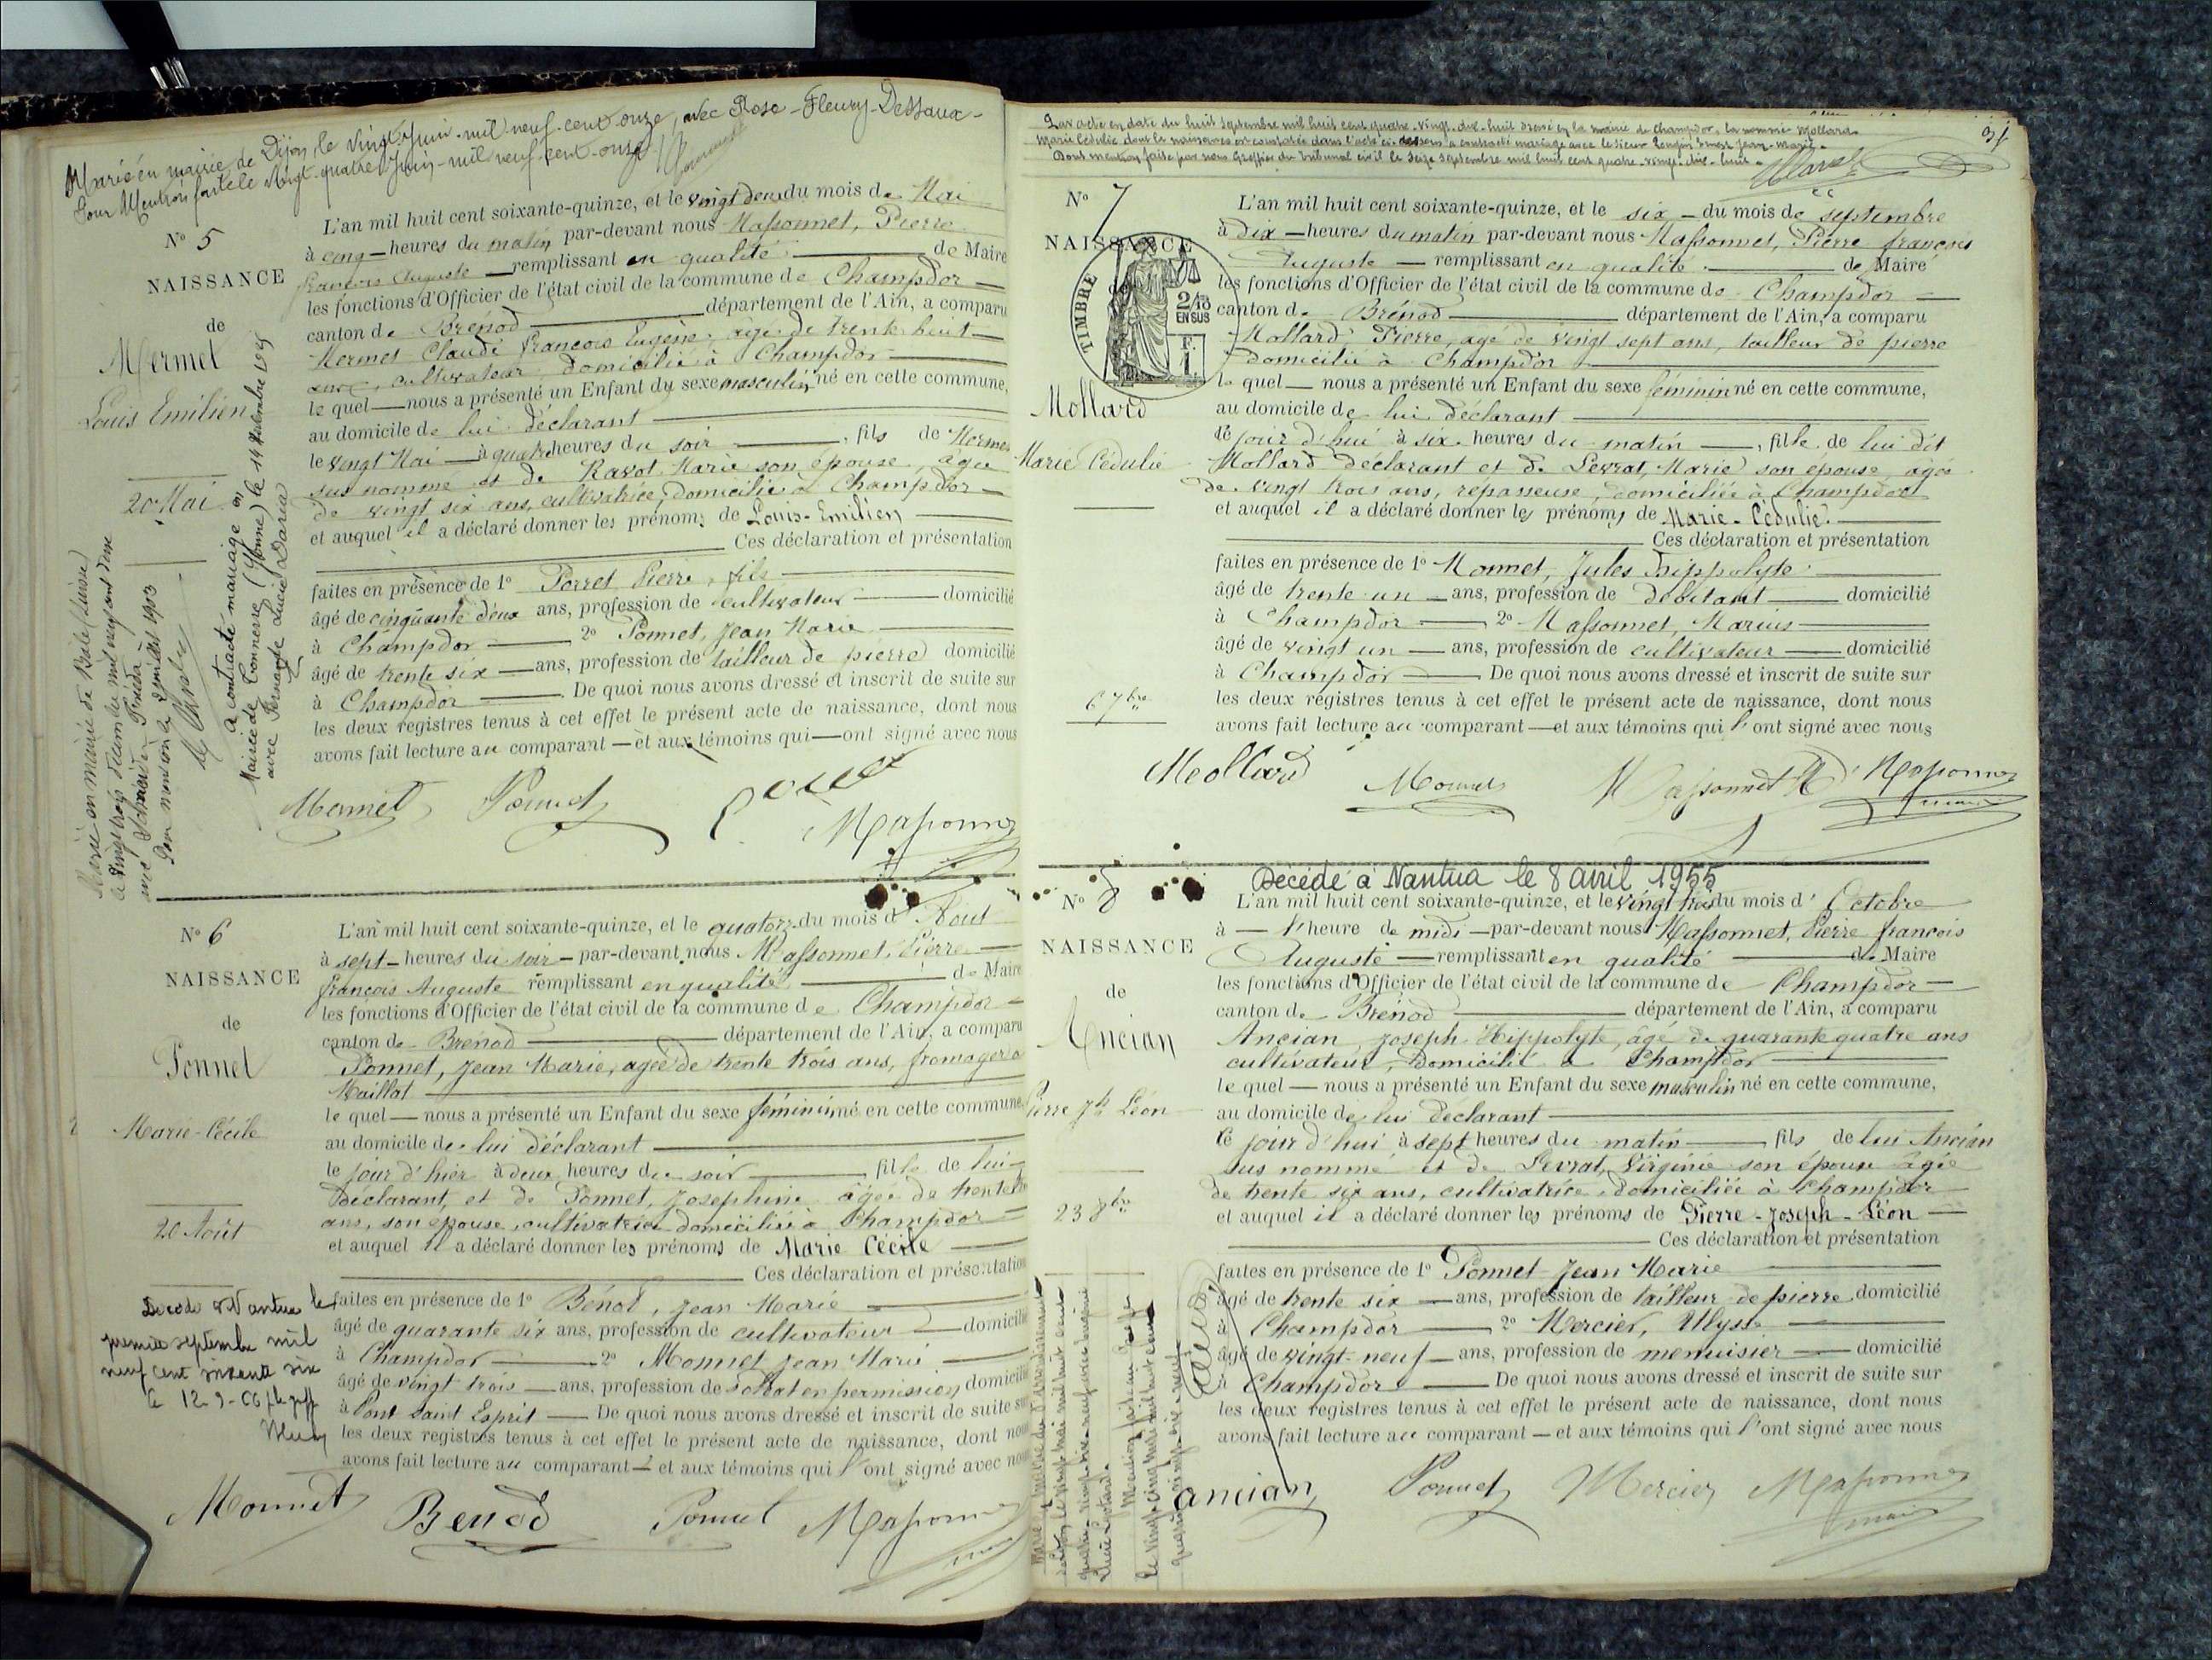 Marié en mairie de Dijon, le vingt Juin mil neuf cent onze, avec Rose-Fleury-Dessaux-
Pour Mention faite le vingt-quatre Juin mil neuf cent onze
N° 5
NAISSANCE
de
Mermet
Louis Emilien
20 Mai
a contracté mariage en
Mairie de Tonnerre (Yonne) le 14
avec Fernande Lucie Daria
L'an mil huit cent soixante-quinze, et le vingt deux du mois de Mai
à cinq heures du matin par-devant nous Massonnet, Pierre
françois Auguste remplissant en qualité de Maire
les fonctions d'Officier de l'état civil de la commune de Champdor
canton de Brénod département de l'Ain, a comparu
Mermet Claude françois Eugène, agé de trente huit
ans, cultivateur domicilié à Champdor
le quel nous a présenté un Enfant du sexe masculin né en cette commune,
au domicile de lui déclarant
le vingt Mai à quatre heures du soir, fils de Mermet
sus nommé et de Ravot Marie son épouse, âgée
de vingt six ans, cultivatrice, domiciliée à Champdor
et auquel il a déclaré donner les prénoms de Louis-Emilien
Ces déclaration et présentation
faites en présence de 1° Perret Pierre, fils
âgé de cinquante deux ans, profession de cultivateur domicilié
à Champdor 2° Ponnet, Jean Marie
âgé de trente six ans, profession de tailleur de pierre domicilié
à Champdor De quoi nous avons dressé et inscrit de suite sur
les deux registres tenus à cet effet le présent acte de naissance, dont nous
avons fait lecture au comparant et aux témoins qui ont signé avec nous
Mermet Ponnet Massonnet
N° 6
NAISSANCE
de
Ponnet
Marie-Cécile
20 Août
Décédé à Nantua le
premier septembre mil
neuf cent soixante six
L'an mil huit cent soixante-quinze, et le quatorze du mois d' Août
à sept heures du soir par-devant nous Massonnet, Pierre
françois Auguste remplissant en qualité de Maire
les fonctions d'Officier de l'état civil de la commune de Champdor
canton de Brénod département de l'Ain, a comparu
Ponnet, Jean Marie, agé de trente trois ans, fromager à
Maillat
le quel nous a présenté un Enfant du sexe féminin né en cette commune,
au domicile de lui déclarant
le jour d'hier à deux heures du soir fille de lui
Déclarant, et de Ponnet, Josephine âgée de trente
ans, son épouse, cultivatrice domiciliée à Champdor
et auquel il a déclaré donner les prénoms de Marie Cécile
Ces déclaration et présentation
faites en présence de 1° Bénod, Jean Marie
âgé de quarante six ans, profession de cultivateur domicilié
à Champdor 2° Monnet Jean Marie
âgé de vingt trois ans, profession de soldat en permission domicilié
à Pont Saint Esprit De quoi nous avons dressé et inscrit de suite sur
les deux registres tenus à cet effet le présent acte de naissance, dont nous
avons fait lecture au comparant et aux témoins qui l'ont signé avec nous
Monnet Benod Ponnet Massonnet
Par acte en date du huit septembre mil huit cent quatre-vingt-dix-huit dressé en la mairie de Champdor, la nommée Mollard
Marie Cédulie dont la naissance est constatée dans l'acte ci-dessous a contracté mariage avec le sieur Jean-Marie.
Dont mention faite par nous Greffier du Tribunal civil le seize septembre mil huit cent quatre-vingt-dix-huit.
N° 7
NAISSANCE
de
TIMBRE
2/10
EN SUS
F.
1
Mollard
Marie Cédulie
6 7bre
L'an mil huit cent soixante-quinze, et le six du mois de septembre
à Dix heures du matin par-devant nous Massonnet, Pierre françois
Auguste remplissant en qualité de Maire
les fonctions d'Officier de l'état civil de la commune de Champdor
canton de Brénod département de l'Ain, a comparu
Mollard Pierre, agé de vingt sept ans, tailleur de pierre
domicilié à Champdor
le quel nous a présenté un Enfant du sexe féminin né en cette commune,
au domicile de lui déclarant
le jour d'hui à six heures du matin, fille de lui dit
Mollard déclarant et de Levrat, Marie son épouse, agée
de vingt trois ans, répasseuse, domiciliée à Champdor
et auquel il a déclaré donner les prénoms de Marie-Cédulie.
Ces déclaration et présentation
faites en présence de 1° Monnet, Jules Hippolyte
âgé de trente un ans, profession de Débitant domicilié
à Champdor 2° Massonnet, Marius
âgé de vingt un ans, profession de cultivateur domicilié
à Champdor De quoi nous avons dressé et inscrit de suite sur
les deux registres tenus à cet effet le présent acte de naissance, dont nous
avons fait lecture au comparant et aux témoins qui l'ont signé avec nous
Mollard Monnet Massonnet M Massonnet
Décédé à Nantua le 8 avril 1955
N° 8
NAISSANCE
de
Ancian
Pierre Jh Léon
23 8bre
L'an mil huit cent soixante-quinze, et le vingt trois du mois d' Octobre
à l'heure de midi par-devant nous Massonnet, Pierre françois
Auguste remplissant en qualité de Maire
les fonctions d'Officier de l'état civil de la commune de Champdor
canton de Brénod département de l'Ain, a comparu
Ancian, Joseph Hippolyte, âgé de quarante quatre ans
cultivateur, Domicilié à Champdor
le quel nous a présenté un Enfant du sexe masculin né en cette commune,
au domicile de lui déclarant
le jour d'hui à sept heures du matin fils de lui Ancian
sus nommé et de Levrat, Virginie son épouse âgée
de trente six ans, cultivatrice, domiciliée à Champdor
et auquel il a déclaré donner les prénoms de Pierre-Joseph-Léon
Ces déclaration et présentation
faites en présence de 1° Ponnet Jean Marie
âgé de trente six ans, profession de tailleur de pierre domicilié
à Champdor 2° Mercier, Ulysse
âgé de vingt-neuf ans, profession de menuisier domicilié
à Champdor De quoi nous avons dressé et inscrit de suite sur
les deux registres tenus à cet effet le présent acte de naissance, dont nous
avons fait lecture au comparant et aux témoins qui l'ont signé avec nous
ancian Ponnet Mercier Massonnet